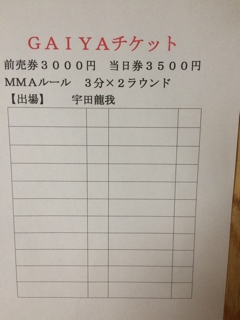 GAIYAチケット
前売券3000円　当日券3500円
MMAルール　3分×2ラウンド
【出場】　　宇田龍我